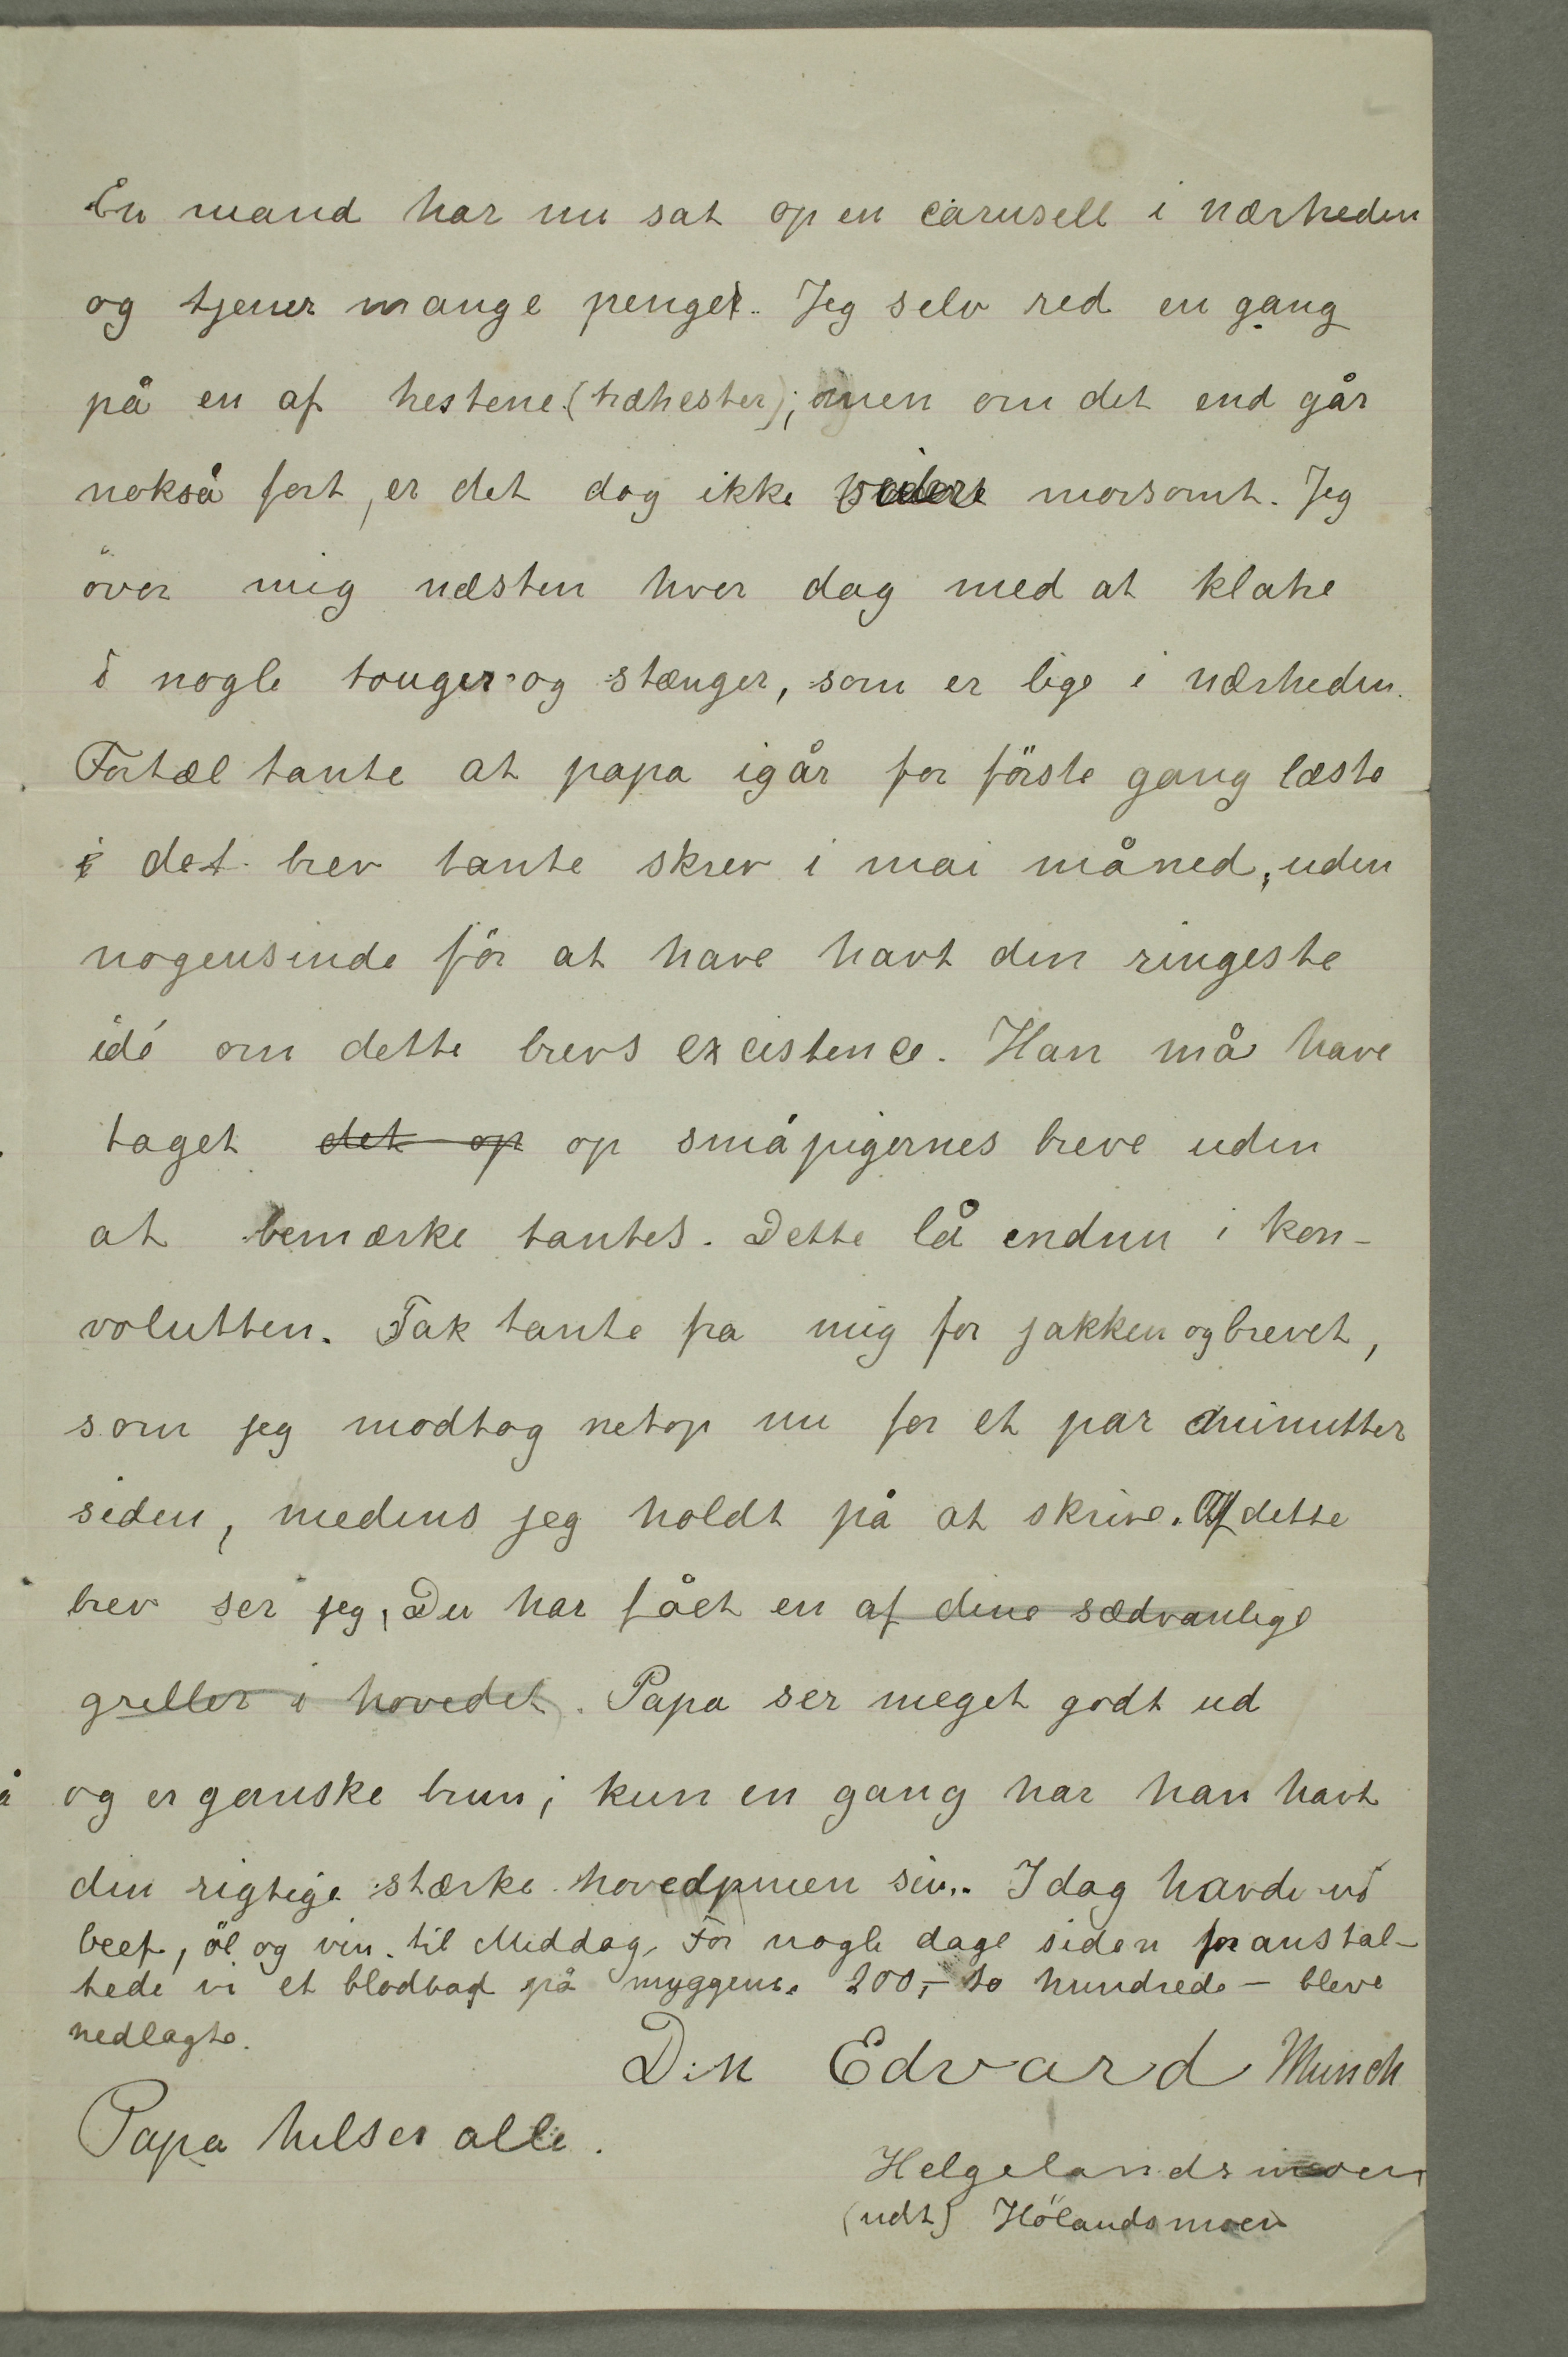 En mand har nu sat op en carusell i nærheden
og tjener mange penger. Jeg selv red en gang
på en af hestene (træhester); men om det end går
nokså fort, er det dog ikke videre morsomt. Jeg
över mig næsten hver dag med at klatre
i nogle touger og stænger, som er lige i nærheden.
Fortæl tante at papa igår for förste gang læste
det brev tante skrev i mai måned, uden
nogensinde för at have havt den ringeste
idé om dette brevs excistence. Han må have
taget det op op småpigernes breve uden
at bemærke tantes. Dette lå endnu i kon-
volutten. Tak tante fra mig for jakken og brevet,
som jeg modtog netop nu for et par minutter
siden, medens jeg holdt på at skrive. Af dette
brev ser jeg, Du har fået en af dine sædvanlige
griller i hovedet. Papa ser meget godt ud
og er ganske brun; kun en gang har han havt
den rigtige stærke hovedpinen sin. Idag havde vi
beef, öl og vin til Middag. For nogle dage siden foranstal-
tede vi et blodbad på myggene. 200,- to hundrede - bleve
nedlagte.
Din Edvard Munch
Papa hilser alle.
Helgelandsmoen
(udt) Hölandsmoen